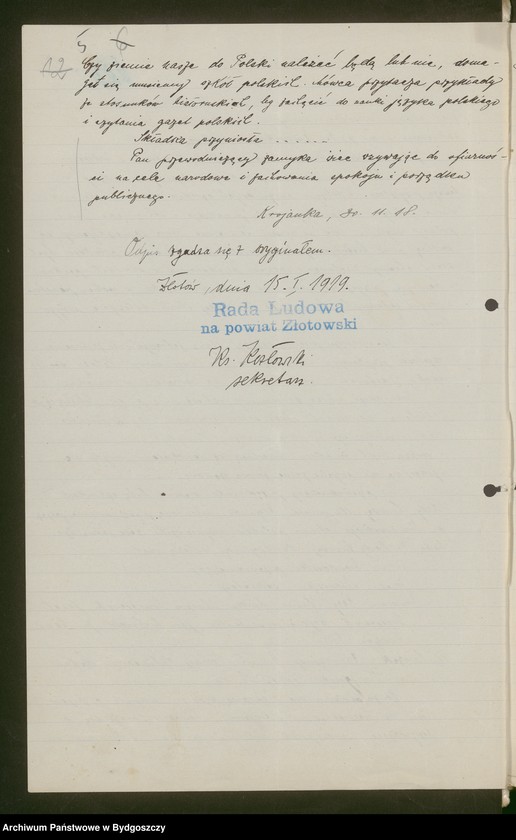 5 6
12
Czy ziemie nasze do Polski należeć będą lub nie, doma-
gać się musimy szkół polskich. Mówca przytacza przykłady
ze stosunków by zachęcić do nauki języka polskiego
i czytania gazet polskich.
Składka przyniosła . . . . . .
Pan przewodniczący zamyka wiec wzywając do ofiarnoś-
ci na cele narodowe i zachowania spokoju i porządku
publicznego.
Krojanka, 30. 11. 18.
Odpis zgadza się z oryginałem.
Złotów, dnia 15. I. 1919.
Rada Ludowa
na powiat Złotowski
Ks. Kozłowski
sekretarz.
Archiwum Państwowe w Bydgoszczy